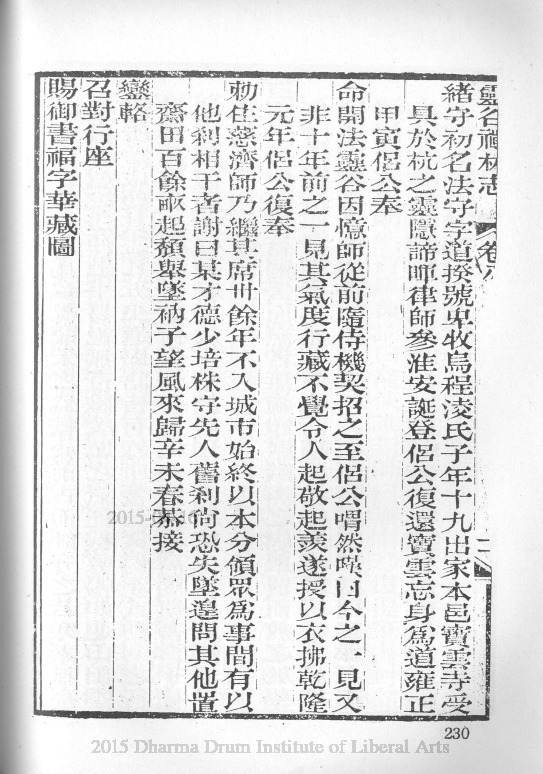 靈谷禪林志 卷八 二
緒守初名法守字道揆號卑牧烏程淩氏子年十九出家本邑寶雲寺受
具於杭之靈隱諦暉律師參淮安誕登侶公復還寶雲忘身為道雍正
甲寅侶公奉
命開法靈谷因憶師從前隨侍機契招之至侶公喟然嘆曰今之一見又
非十年前之一見其氣度行藏不覺令人起敬起羨遂授以衣拂乾隆
元年侶公復奉
勅住慈濟師乃繼其席卅餘年不入城市始終以本分領眾為事間有以
他剎相干者謝曰某才德少培株守先人舊剎尚恐失墜遑問其他置
齋田百餘畝起頹舉墜衲子望風來歸辛未春恭接
鑾輅
召對行座
賜御書福字華藏圖
230
2015 Dharma Drum Institute of Liberal Arts